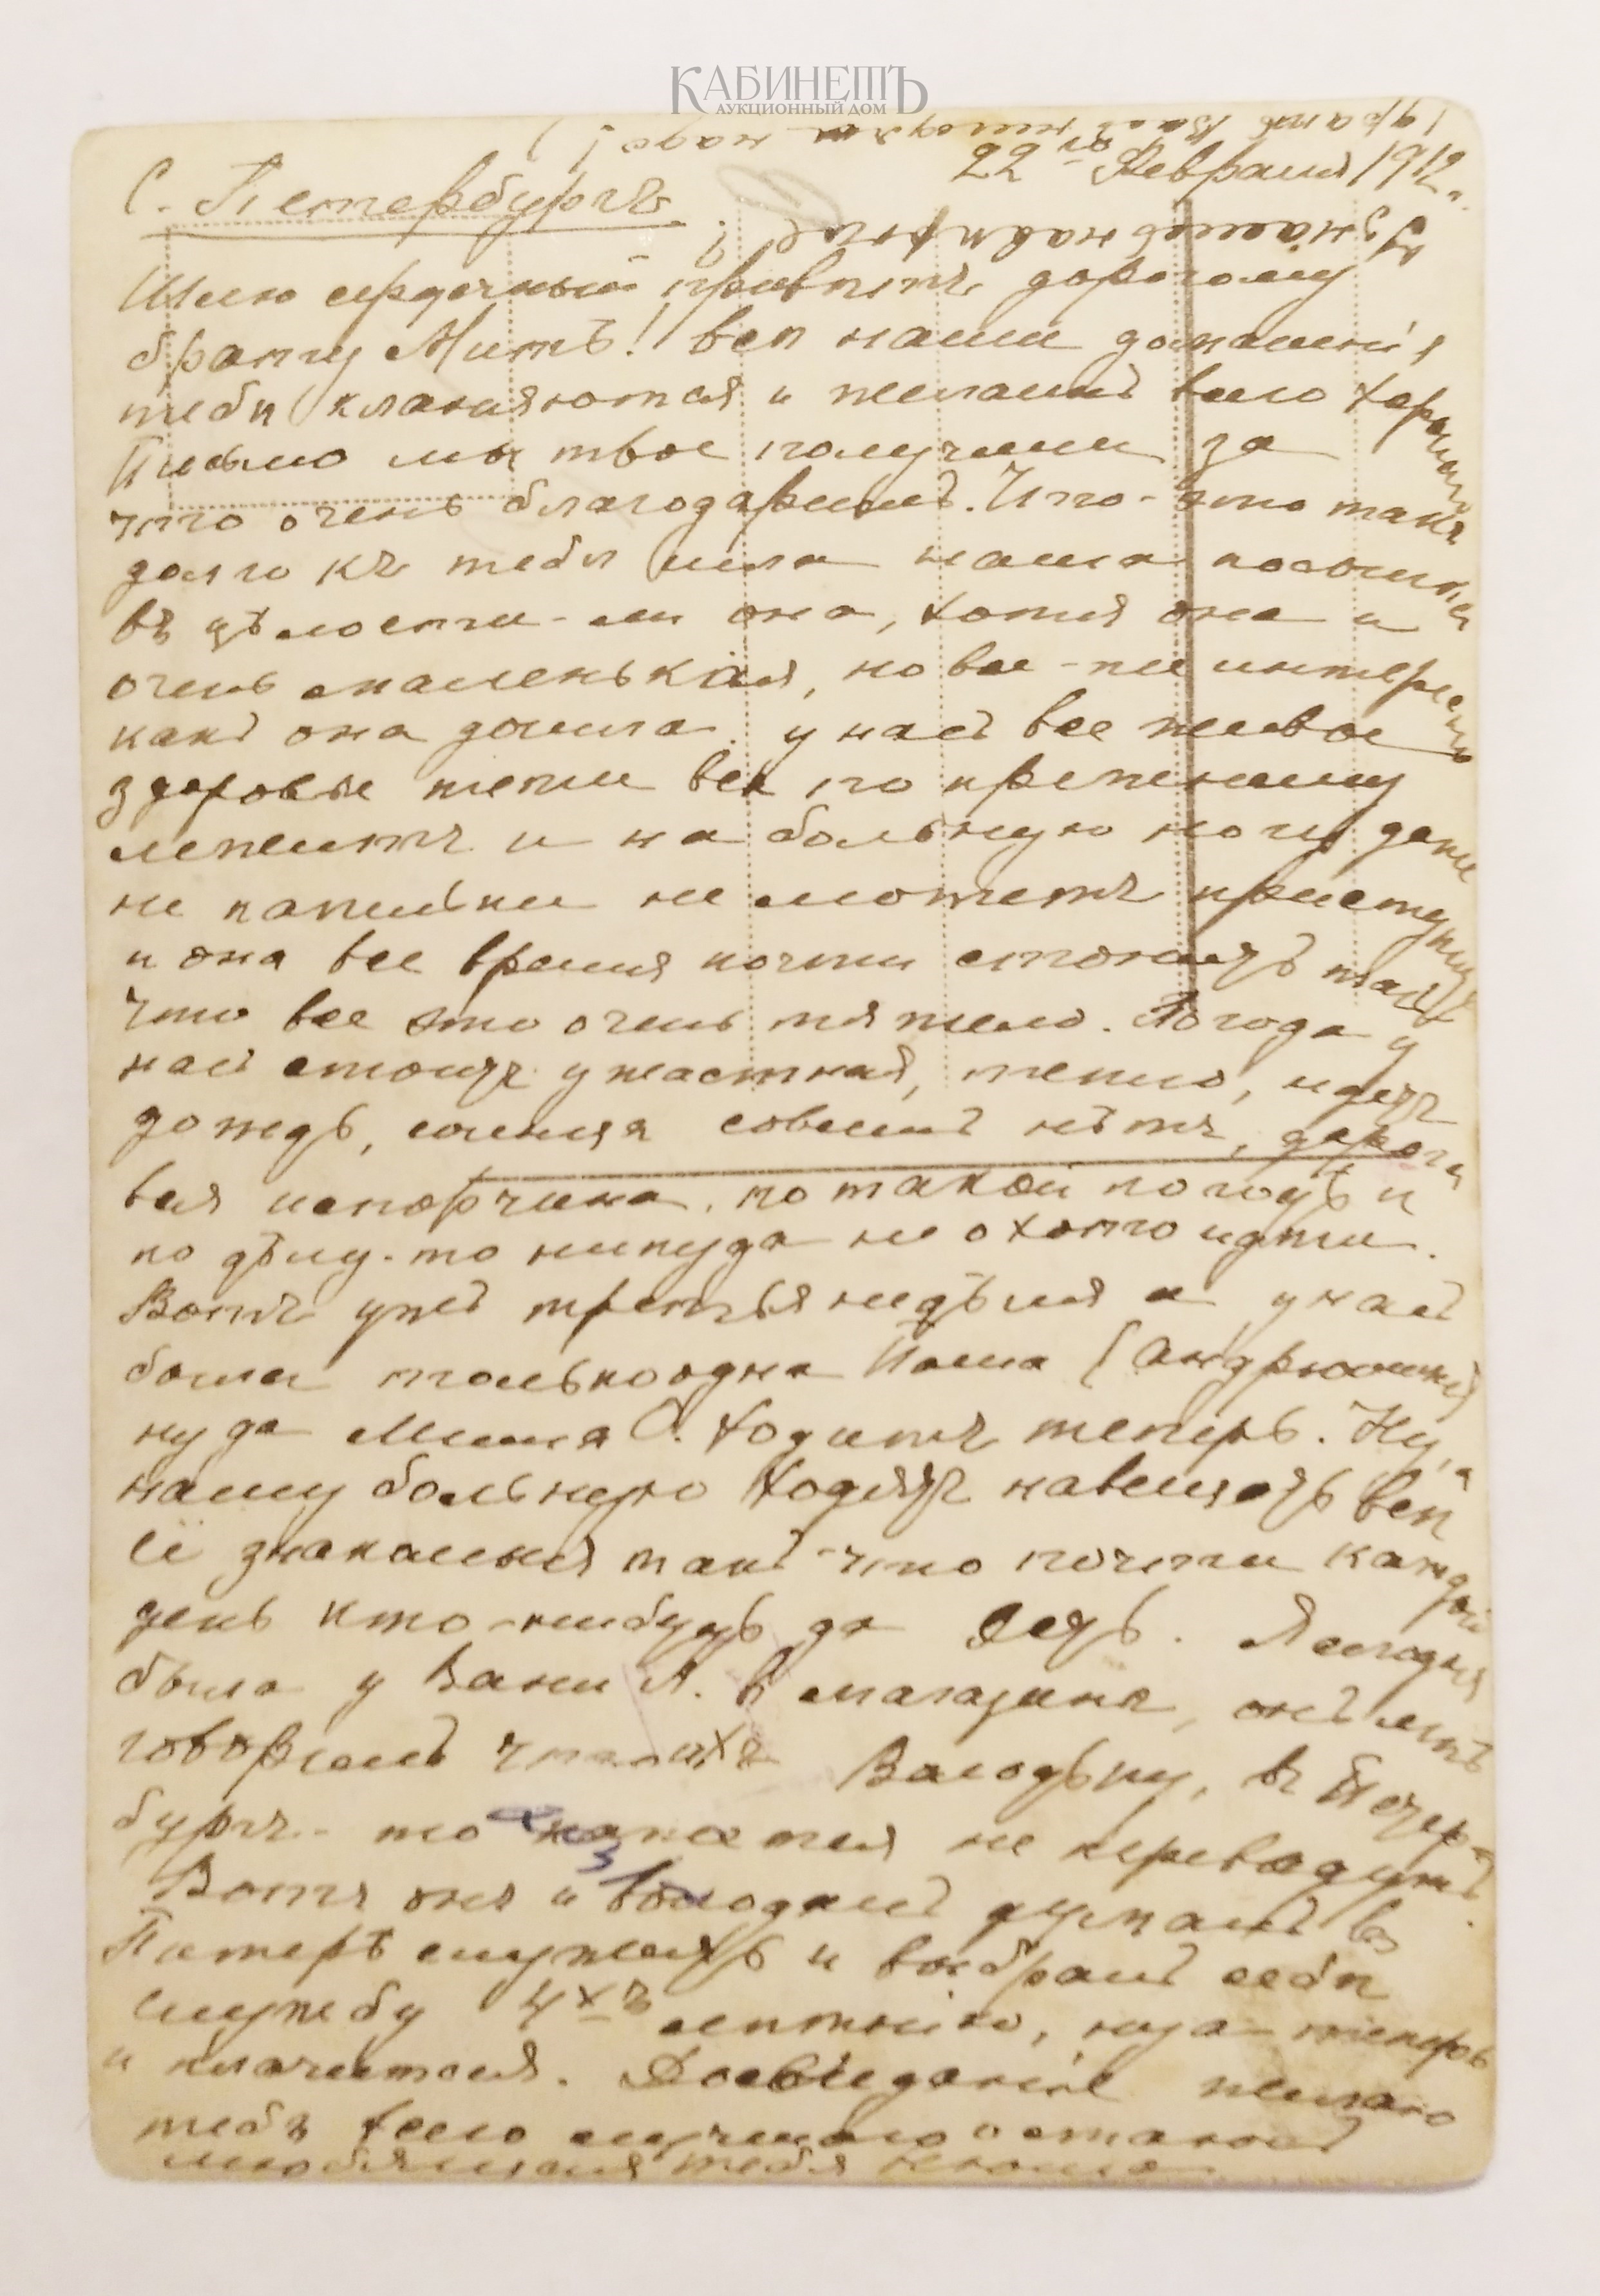 КАБИНЕТЪ
АУКЦИОННЫЙ ДОМ
надо!
С. Петербургъ.
22 Февраля 1912
Шлю сердечный привѣтъ дорогому
братцу Митѣ! Всѣ наши домашнія
тебѣ кланяются и желаютъ всего хорошаго
Письмо мы твое получили за
что очень благодаримъ. Что-это такъ
долго къ тебѣ шла наша посылка
въ цѣлости-ли она, хотя она и
очень маленькая, но все-же интересно
какъ она дошла. у насъ все не
здоровье тети все по прежнему
лежитъ и на больную ногу даже
ни капельки не можетъ приступить
и она все время почти стонетъ такъ
что все это очень тяжело. Погода у
насъ стоитъ ужастная, тепло, идетъ
дождь, солнця совсемъ нѣтъ, дорога
вся испорчина, по такой погодѣ и
по дѣлу-то никуда не охотно идти.
Вотъ ужъ третья недѣля а у насъ
была только одна Паша (Андрюшки)
ну да Миша С. ходитъ теперь. Ну, а
нашу больную ходятъ навещать всѣ
её знакомыя такъ-что почти каждый
день кто-нибудь да есть. Я сегодня
была у Вани А. в магазинѣ, онъ мнѣ
говорилъ что ихъ Володьку, въ Петер-
бургъ-то кажется не переведутъ.
Вотъ онъ и Володя думалъ въ
Питерѣ служить и выбралъ себѣ
службу 4хъ летнюю, ну а теперь
и плачется. Досвиданіе желаю
тебѣ всего лучшаго
любящая тебя